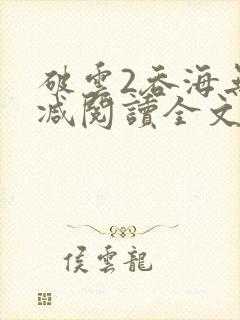 破雲2吞海
減閱讀全文
侯雲龍